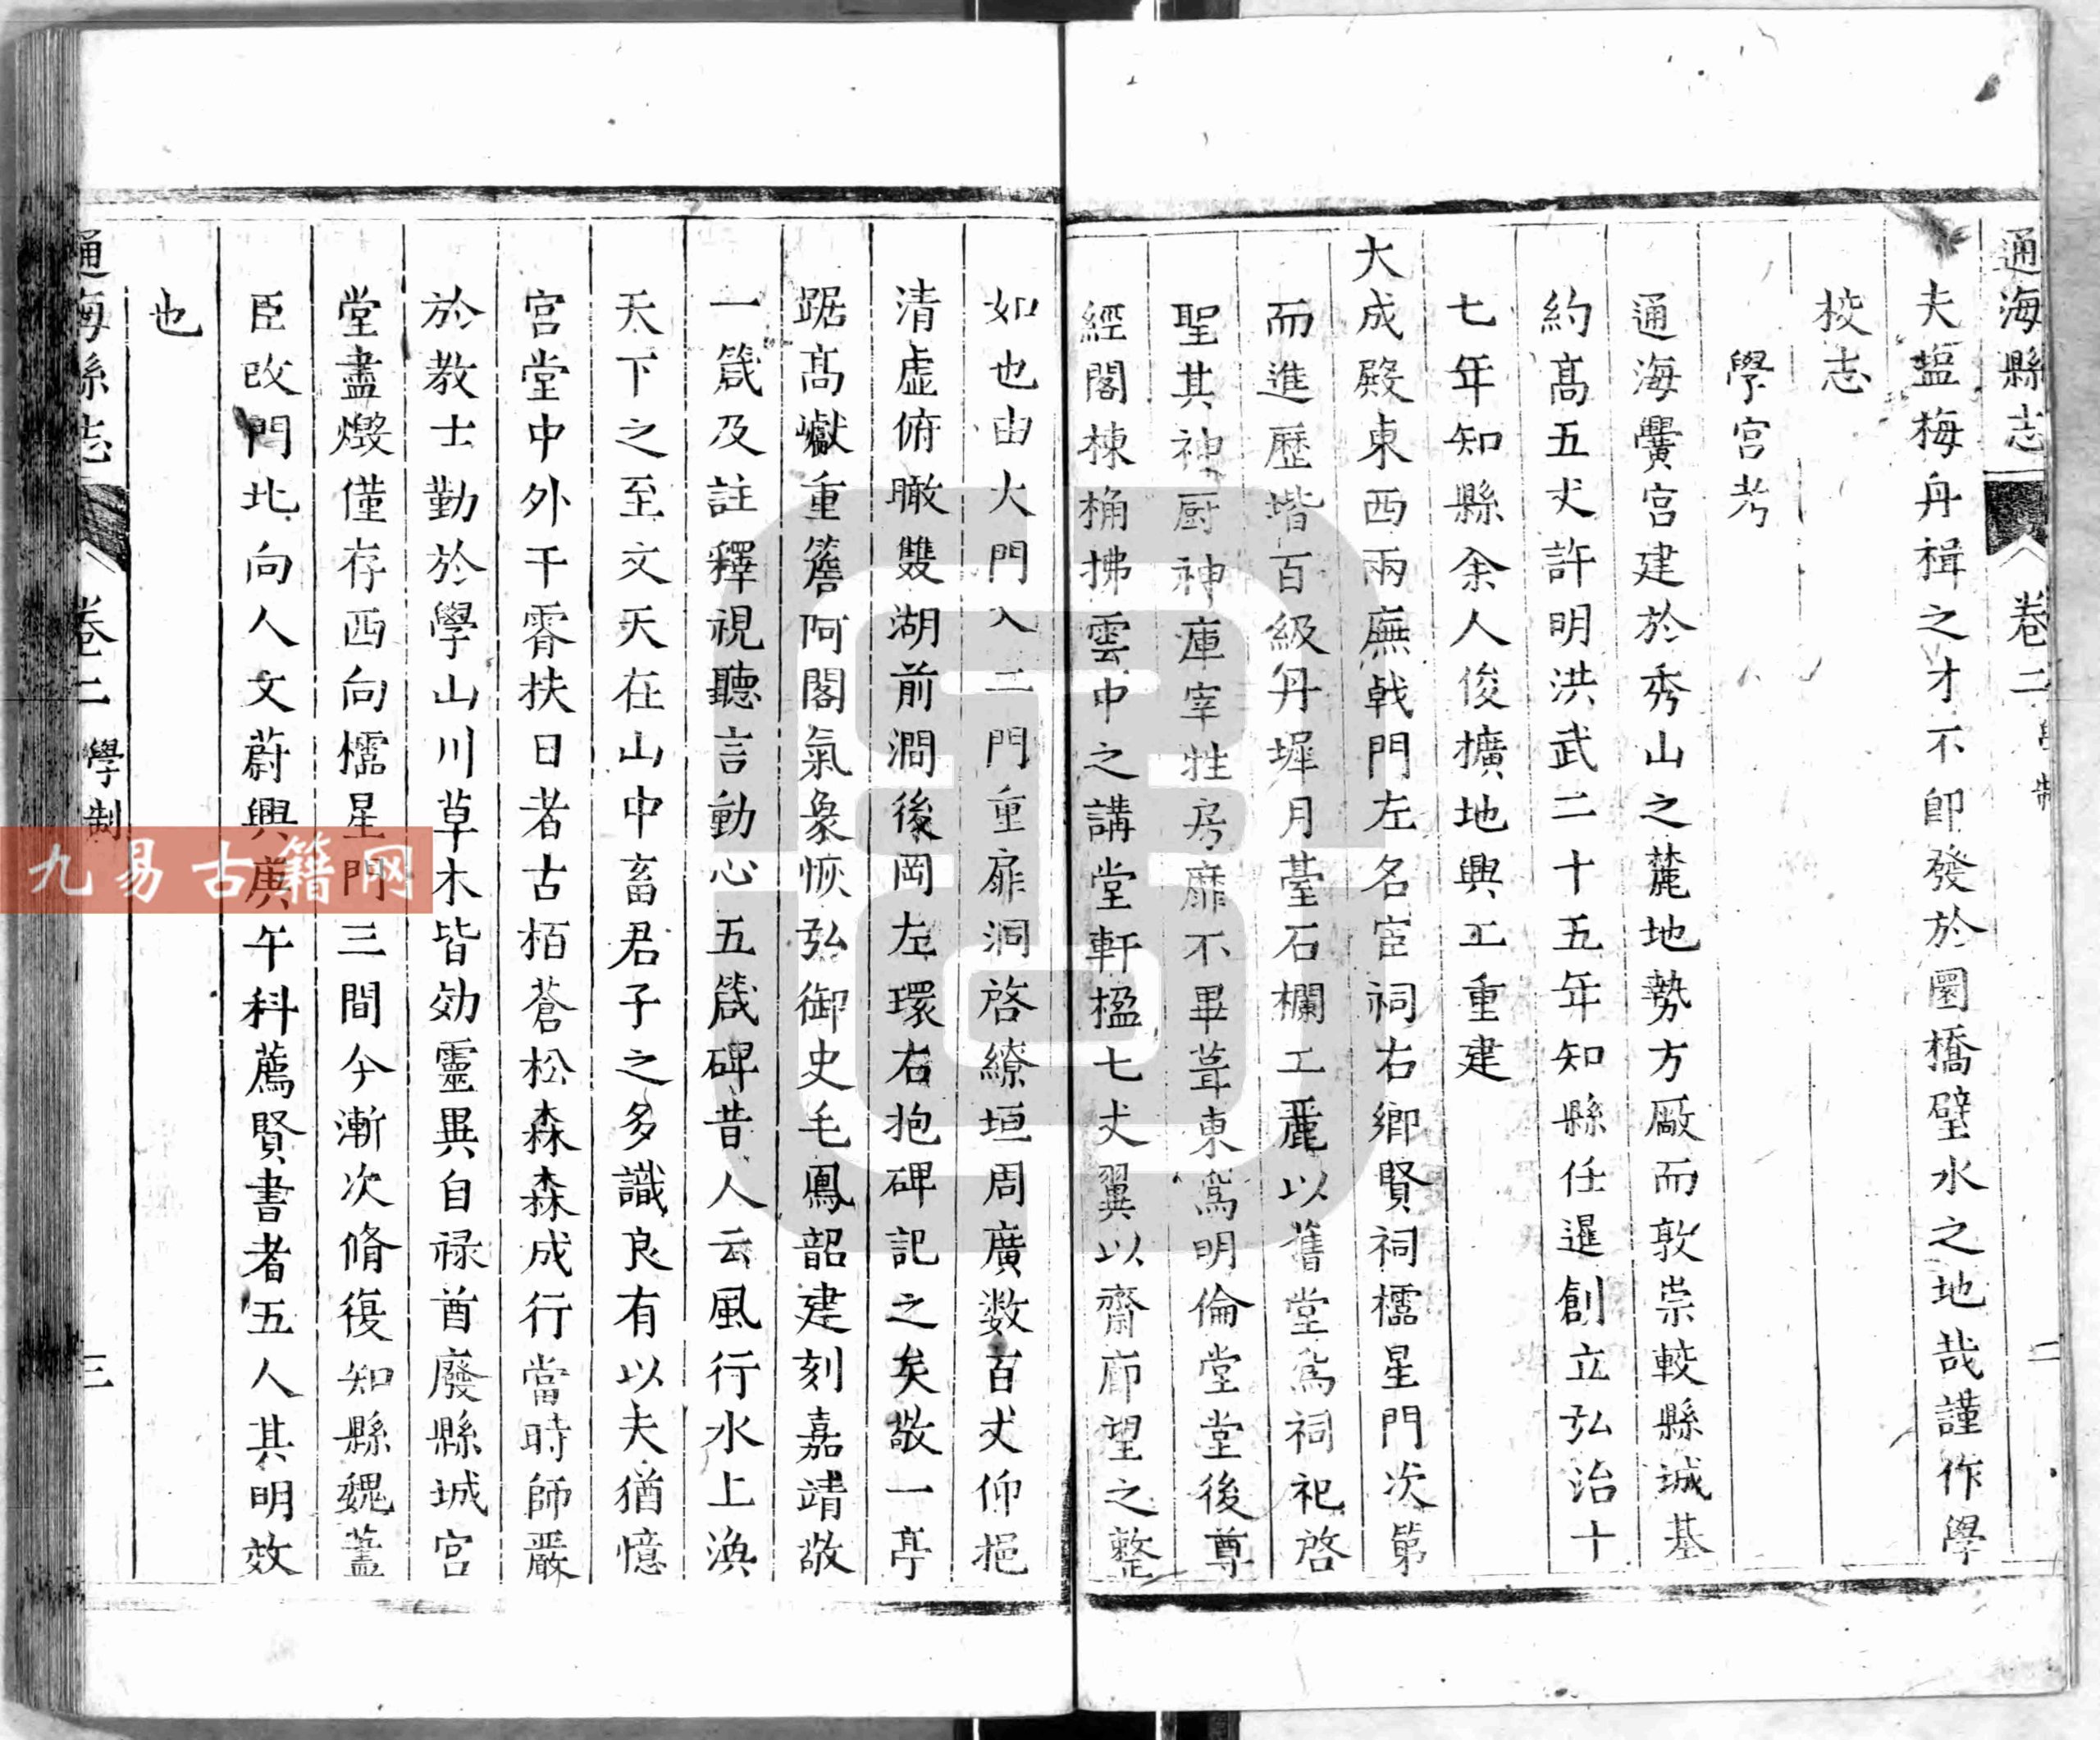 通海縣志 卷二 學制 二
夫塩梅舟楫之才不卽發於圜橋璧水之地哉謹作學
校志
學宮考
通海黌宮建於秀山之麓地勢方厰而敦崇較縣城基
約髙五丈許明洪武二十五年知縣任暹創立弘治十
七年知縣余人俊擴地興工重建
大成殿東西兩廡戟門左名宦祠右鄉賢祠櫺星門次第
而進歷堦百級丹墀月臺石欄工麗以舊堂爲祠祀啓
聖其神厨神庫宰牲房靡不畢葺東爲明倫堂堂後尊
經閣棟桷拂雲中之講堂軒楹七丈翼以齋廊望之整
如也由大門入二門重扉洞啓繚垣周廣数百丈仰挹
清虛俯瞰雙湖前澗後岡左環右抱碑記之矣敬一亭
踞髙巘重簷阿閣氣象恢弘御史毛鳳韶建刻嘉靖敬
一箴及註釋視聽言動心五箴碑昔人云風行水上渙
天下之至文天在山中畜君子之多識良有以夫猶憶
宮堂中外干霄扶日者古栢蒼松森森成行當時師嚴
於教士勤於學山川草木皆効靈異自禄酋廢縣城宮
堂盡燬僅存西向櫺星門三間今漸次脩復知縣魏藎
臣改門北向人文蔚興庚午科薦賢書者五人其明效
也
通海縣志 卷二 學制 三
九易古籍网